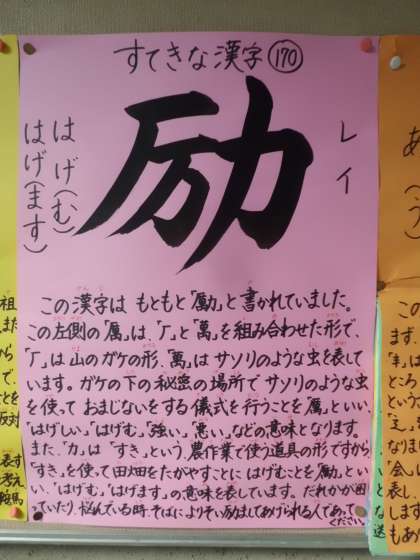 すてきな漢字 170
励
レイ
はげ(む)
はげ(ます)
この漢字は もともと「勵」と書かれていました。
この左側の「厲」は、「厂」と「萬」を組み合わせた形で、
「厂」は山のガケの形、「萬」はサソリのような虫を表して
います。ガケの下の秘密の場所で サソリのような虫
を使って おまじないをする儀式を行うことを「厲」といい、
「はげしい」、「はげむ」、「強い」、「悪い」、などの意味となります。
また、「力」は 「すき」という、農作業で使う道具の形ですから
「すき」を使って田畑をたがやすことに はげむことを「勵」とい
い、「はげむ」、「はげます」の意味を表しています。だれかが困
っていたり 悩んでいる時、そばによりそい励ましてあげられる人であって
ください。
祖
また
から
で、
ことを
反対
表す
考え
あ(う)
ます。
「羊」は
ところ
という
なりま
「会い
表し
します
もあ